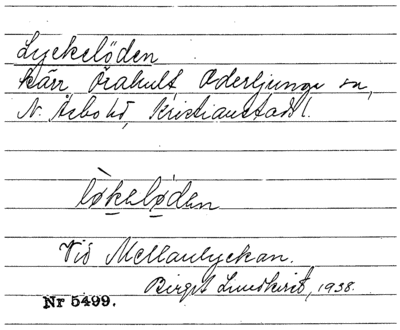 Lyckelöden
kärr, Örahult, Oderljunga sn,
N. Åsbo hd, Kristianstads l.
lòkelöden
Vid Mellanlyckan.
Birgit Lundkvist, 1938.
Nr 5499.